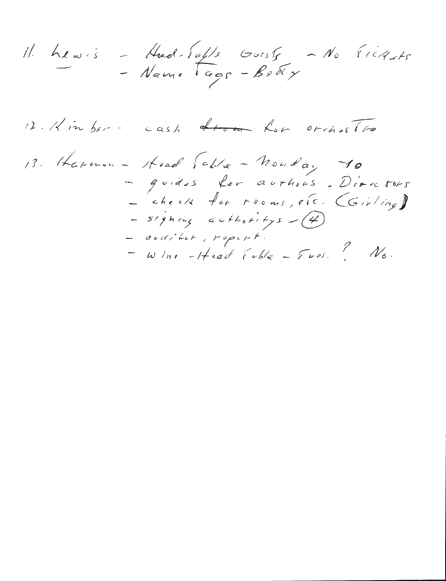 11. Lewis - Head-Table Guests - No Tickets
- Name Tags - Betty
12. Kimber - cash from for orchestra
13. Harmon - Head Table - Monday 10
- guides for authors, Directors
- check for rooms, etc. (Girling)
- signing authoritys - 4
- auditor, report.
- wine - Head Table - Tues. ? No.